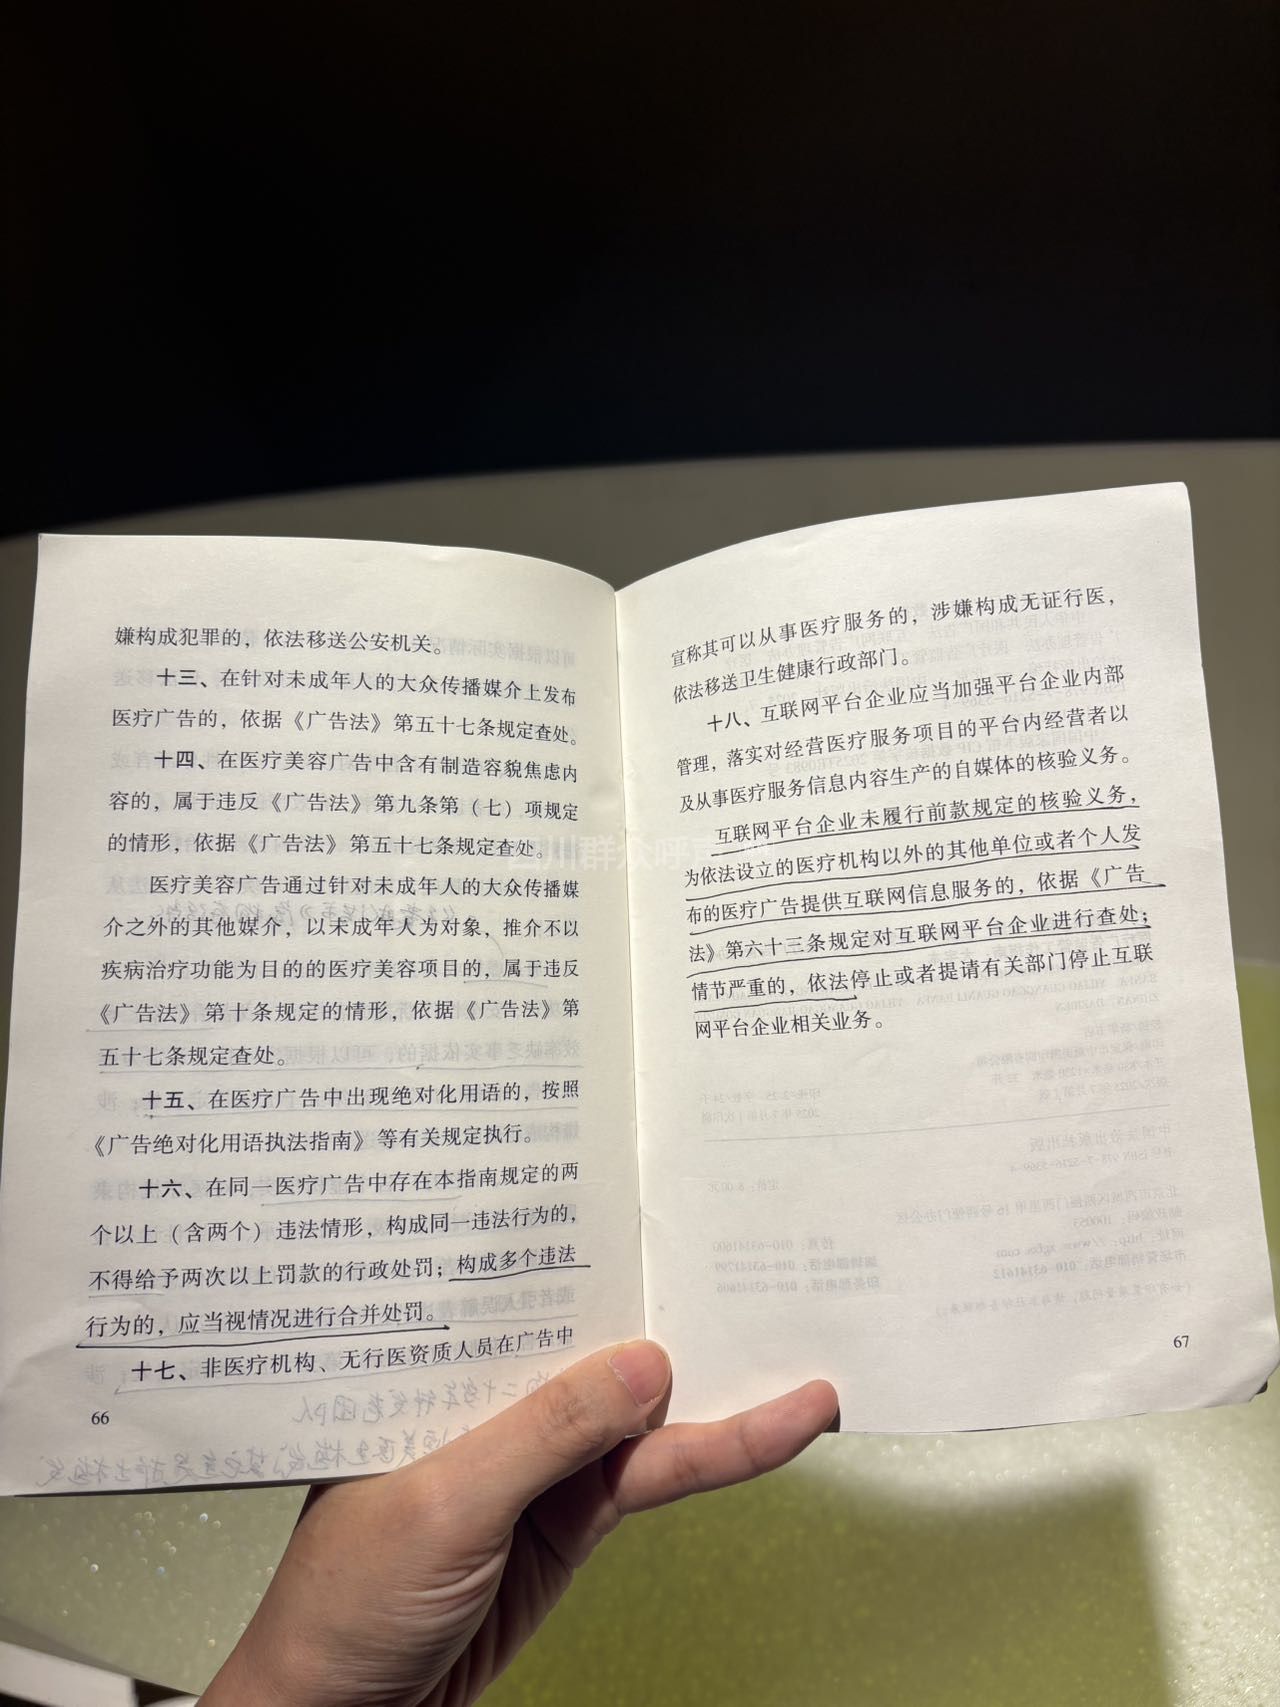 嫌构成犯罪的，依法移送公安机关。
十三、在针对未成年人的大众传播媒介上发布
医疗广告的，依据《广告法》第五十七条规定查处。
十四、在医疗美容广告中含有制造容貌焦虑内
容的，属于违反《广告法》第九条第（七）项规定
的情形，依据《广告法》第五十七条规定查处。
医疗美容广告通过针对未成年人的大众传播媒
介之外的其他媒介，以未成年人为对象，推介不以
疾病治疗功能为目的的医疗美容项目的，属于违反
《广告法》第十条规定的情形，依据《广告法》第
五十七条规定查处。
十五、在医疗广告中出现绝对化用语的，按照
《广告绝对化用语执法指南》等有关规定执行。
十六、在同一医疗广告中存在本指南规定的两
个以上（含两个）违法情形，构成同一违法行为的，
不得给予两次以上罚款的行政处罚；构成多个违法
行为的，应当视情况进行合并处罚。
十七、非医疗机构、无行医资质人员在广告中
66
宣称其可以从事医疗服务的，涉嫌构成无证行医，
依法移送卫生健康行政部门。
十八、互联网平台企业应当加强平台企业内部
管理，落实对经营医疗服务项目的平台内经营者以
及从事医疗服务信息内容生产的自媒体的核验义务。
互联网平台企业未履行前款规定的核验义务，
为依法设立的医疗机构以外的其他单位或者个人发
布的医疗广告提供互联网信息服务的，依据《广告
法》第六十三条规定对互联网平台企业进行查处；
情节严重的，依法停止或者提请有关部门停止互联
网平台企业相关业务。
67